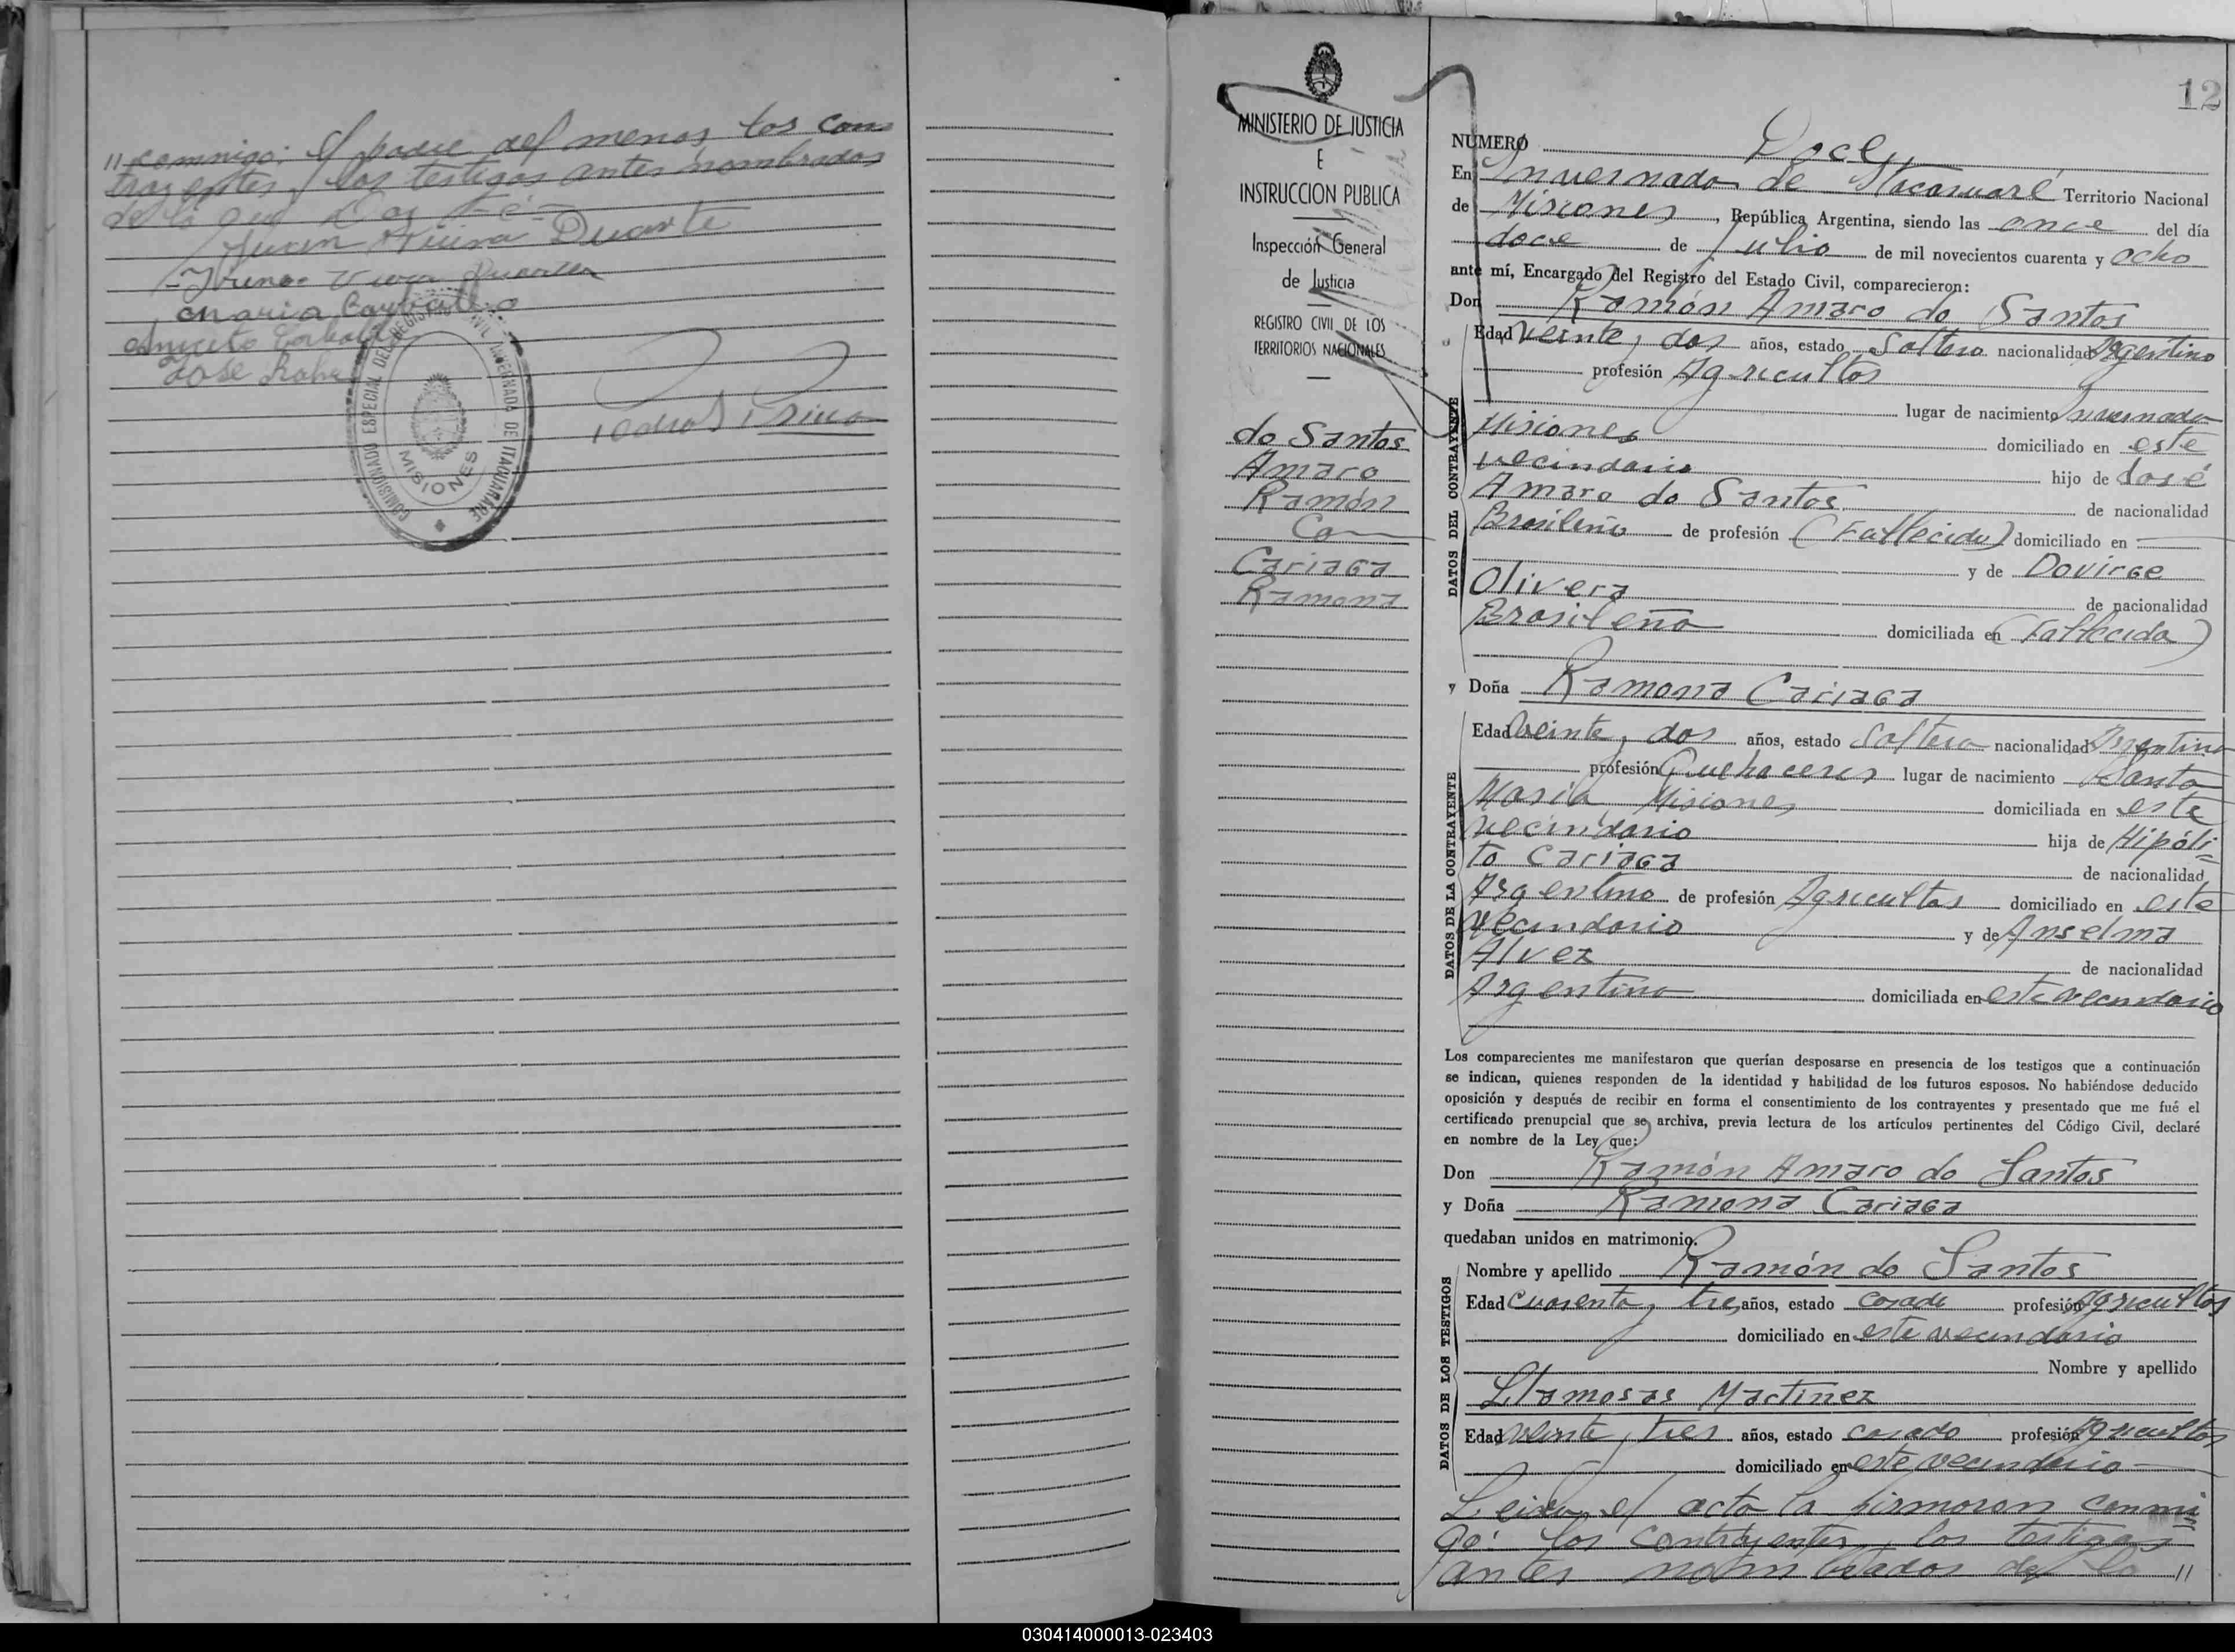 // conmigo: el padre del menor, los con
trayentes y los testigos antes nombrados
de lo que doy fé
Juan Viera Duarte
Ireneo Viera Duarte
maria
Aniceto
José
COMISIONADO ESPECIAL DEL REGISTRO CIVIL INVERNADA DE ITACUARARE
MISIONES
12
MINISTERIO DE JUSTICIA
E
INSTRUCCION PUBLICA
Inspección General
de Justicia
REGISTRO CIVIL DE LOS
TERRITORIOS NACIONALES
do Santos
Amaro
Ramón
Con
Cariaga
Ramona
NUMERO Doce
En Invernada de Itacaruaré Territorio Nacional
de Misiones, República Argentina, siendo las once del día
doce de Julio de mil novecientos cuarenta y ocho
ante mí, Encargado del Registro del Estado Civil, comparecieron:
Don Ramón Amaro do Santos
DATOS DEL CONTRAYENTE
Edad veinte y dos años, estado Soltero nacionalidad Argentino
profesión Agricultor
lugar de nacimiento Invernada
Misiones domiciliado en este
vecindario hijo de José
Amaro do Santos de nacionalidad
Brasileño de profesión (Fallecido) domiciliado en
y de Dovirge
Olivera de nacionalidad
Brasileña domiciliada en (Fallecida)
y Doña Ramona Cariaga
DATOS DE LA CONTRAYENTE
Edad veinte y dos años, estado Soltera nacionalidad Argentina
profesión Quehaceres lugar de nacimiento Santa
María Misiones domiciliada en este
vecindario hija de Hipóli-
to Cariaga de nacionalidad
Argentino de profesión Agricultor domiciliado en este
vecindario y de Anselma
Alvez de nacionalidad
Argentina domiciliada en este vecindario
Los comparecientes me manifestaron que querían desposarse en presencia de los testigos que a continuación
se indican, quienes responden de la identidad y habilidad de los futuros esposos. No habiéndose deducido
oposición y después de recibir en forma el consentimiento de los contrayentes y presentado que me fué el
certificado prenupcial que se archiva, previa lectura de los artículos pertinentes del Código Civil, declaré
en nombre de la Ley que:
Don Ramón Amaro do Santos
y Doña Ramona Cariaga
quedaban unidos en matrimonio.
DATOS DE LOS TESTIGOS
Nombre y apellido Ramón do Santos
Edad cuarenta y tres años, estado casado profesión Agricultor
domiciliado en este vecindario
Nombre y apellido
Llamosas Martinez
Edad veinte y tres años, estado casado profesión Agricultor
domiciliado en este vecindario
Leida el acta la firmaron conmi
go: los contrayentes y los testigos
antes nombrados de lo //
030414000013-023403